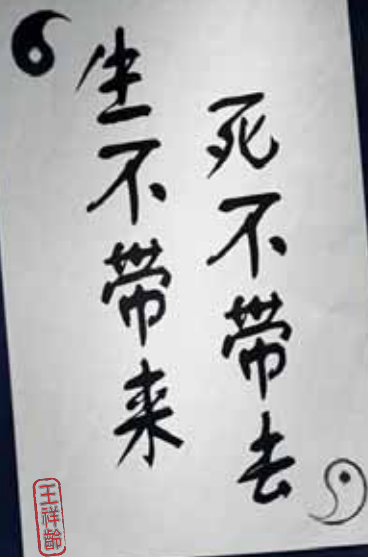 生不带来
死不带去
王祥龄